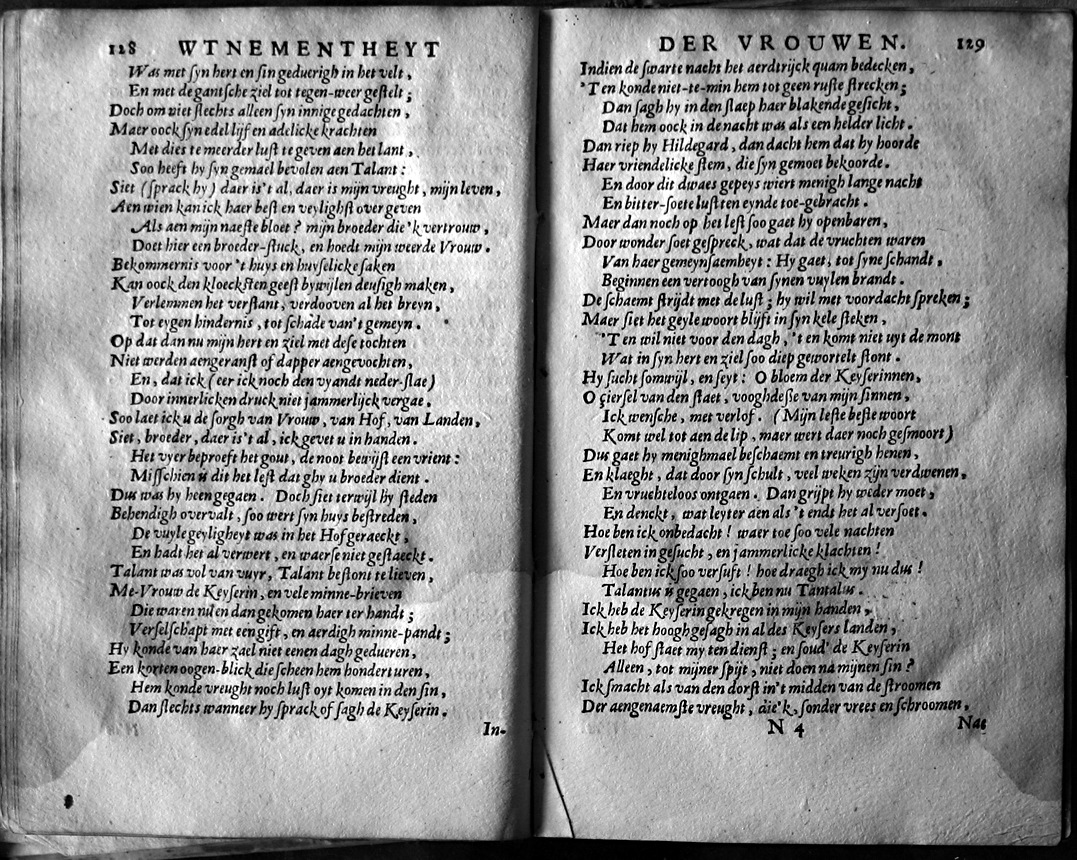 128 WTNEMENTHEYT
Was met ſyn hert en ſin geduerigh in het velt,
En met de gantſche ziel tot tegen-weer geſtelt;
Doch om niet ſlechts alleen ſyn innige gedachten,
Maer oock ſyn edel lijf en adelicke krachten
Met dies te meerder luſt te geven aen het lant,
Soo heeft hy ſyn gemael bevolen aen Talant:
Siet (ſprack hy) daer is't al, daer is mijn vreught, mijn leven,
Aen wien kan ick haer beſt en veylighſt over geven
Als aen mijn naeſte bloet? mijn broeder die 'k vertrouw,
Doet hier een broeder-ſtuck, en hoedt mijn weerde Vrouw.
Bekommernis voor 't huys en huyſelicke ſaken
Kan oock den kloeckſten geeſt bywijlen deuſigh maken,
Verlemmen het verſtant, verdooven al het breyn,
Tot eygen hindernis, tot ſchade van't gemeyn.
Op dat dan nu mijn hert en ziel met deſe tochten
Niet werden aengeranſt of dapper aengevochten,
En, dat ick (eer ick noch den vyandt neder-ſlae)
Door innerlicken druck niet jammerlijck vergae.
Soo laet ick u de ſorgh van Vrouw, van Hof, van Landen,
Siet, broeder, daer is't al, ick gevet u in handen.
Het vyer beproeft het gout, de noot bewijſt een vrient:
Miſſchien is dit het leſt dat ghy u broeder dient.
Dus was hy heen gegaen. Doch ſiet terwijl hy ſteden
Behendigh overvalt, ſoo wert ſyn huys beſtreden,
De vuyle geyligheyt was in het Hof geraeckt,
En hadt het al verwert, en waerſe niet geſtaeckt.
Talant was vol van vuyr, Talant beſtont te lieven,
Me-Vrouw de Keyſerin, en vele minne-brieven
Die waren nu en dan gekomen haer ter handt;
Verſelſchapt met een gift, en aerdigh minne-pandt;
Hy konde van haer zael niet eenen dagh gedueren,
Een korten oogen-blick die ſcheen hem hondert uren,
Hem konde vreught noch luſt oyt komen in den ſin,
Dan ſlechts wanneer hy ſprack of ſagh de Keyſerin.
In-
DER VROUWEN. 129
Indien de ſwarte nacht het aerdtrijck quam bedecken,
'T en konde niet-te-min hem tot geen ruſte ſtrecken;
Dan ſagh hy in den ſlaep haer blakende geſicht,
Dat hem oock in de nacht was als een helder licht.
Dan riep hy Hildegard, dan dacht hem dat hy hoorde
Haer vriendelicke ſtem, die ſyn gemoet bekoorde.
En door dit dwaes gepeys wiert menigh lange nacht
En bitter-ſoete luſt ten eynde toe-gebracht.
Maer dan noch op het leſt ſoo gaet hy openbaren,
Door wonder ſoet geſpreck, wat dat de vruchten waren
Van haer gemeynſaemheyt: Hy gaet, tot ſyne ſchandt,
Beginnen een vertoogh van ſynen vuylen brandt.
De ſchaemt ſtrijdt met de luſt; hy wil met voordacht ſpreken;
Maer ſiet het geyle woort blijft in ſyn kele ſteken,
'T en wil niet voor den dagh, 't en komt niet uyt de mont
Wat in ſyn hert en ziel ſoo diep gewortelt ſtont.
Hy ſucht ſomwijl, en ſeyt: O bloem der Keyſerinnen,
O çierſel van den ſtaet, vooghdeſſe van mijn ſinnen,
Ick wenſche, met verlof. (Mijn leſte beſte woort
Komt wel tot aen de lip, maer wert daer noch geſmoort)
Dus gaet hy menighmael beſchaemt en treurigh henen,
En klaeght, dat door ſyn ſchult, veel weken zijn verdwenen,
En vruchteloos ontgaen. Dan grijpt hy weder moet,
En denckt, wat leyter aen als 't endt het al verſoet.
Hoe ben ick onbedacht! waer toe ſoo vele nachten
Verſleten in geſucht, en jammerlicke klachten!
Hoe ben ick ſoo verſuft! hoe draegh ick my nu dus!
Talantus is gegaen, ick ben nu Tantalus.
Ick heb de Keyſerin gekregen in mijn handen,
Ick heb het hoogh geſagh in al des Keyſers landen,
Het hof ſtaet my ten dienſt; en ſoud' de Keyſerin
Alleen, tot mijner ſpijt, niet doen na mijnen ſin?
Ick ſmacht als van den dorſt in't midden van de ſtroomen
Der aengenaemſte vreught, die'k, ſonder vrees en ſchroomen,
N 4 Nae